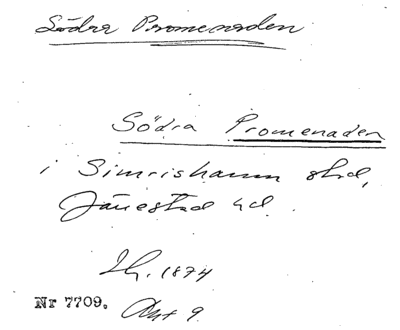 Södra Promenaden
Södra Promenaden
i Simrishamn stad,
Järrestad hd.
1874
Nr 7709. Akt 9